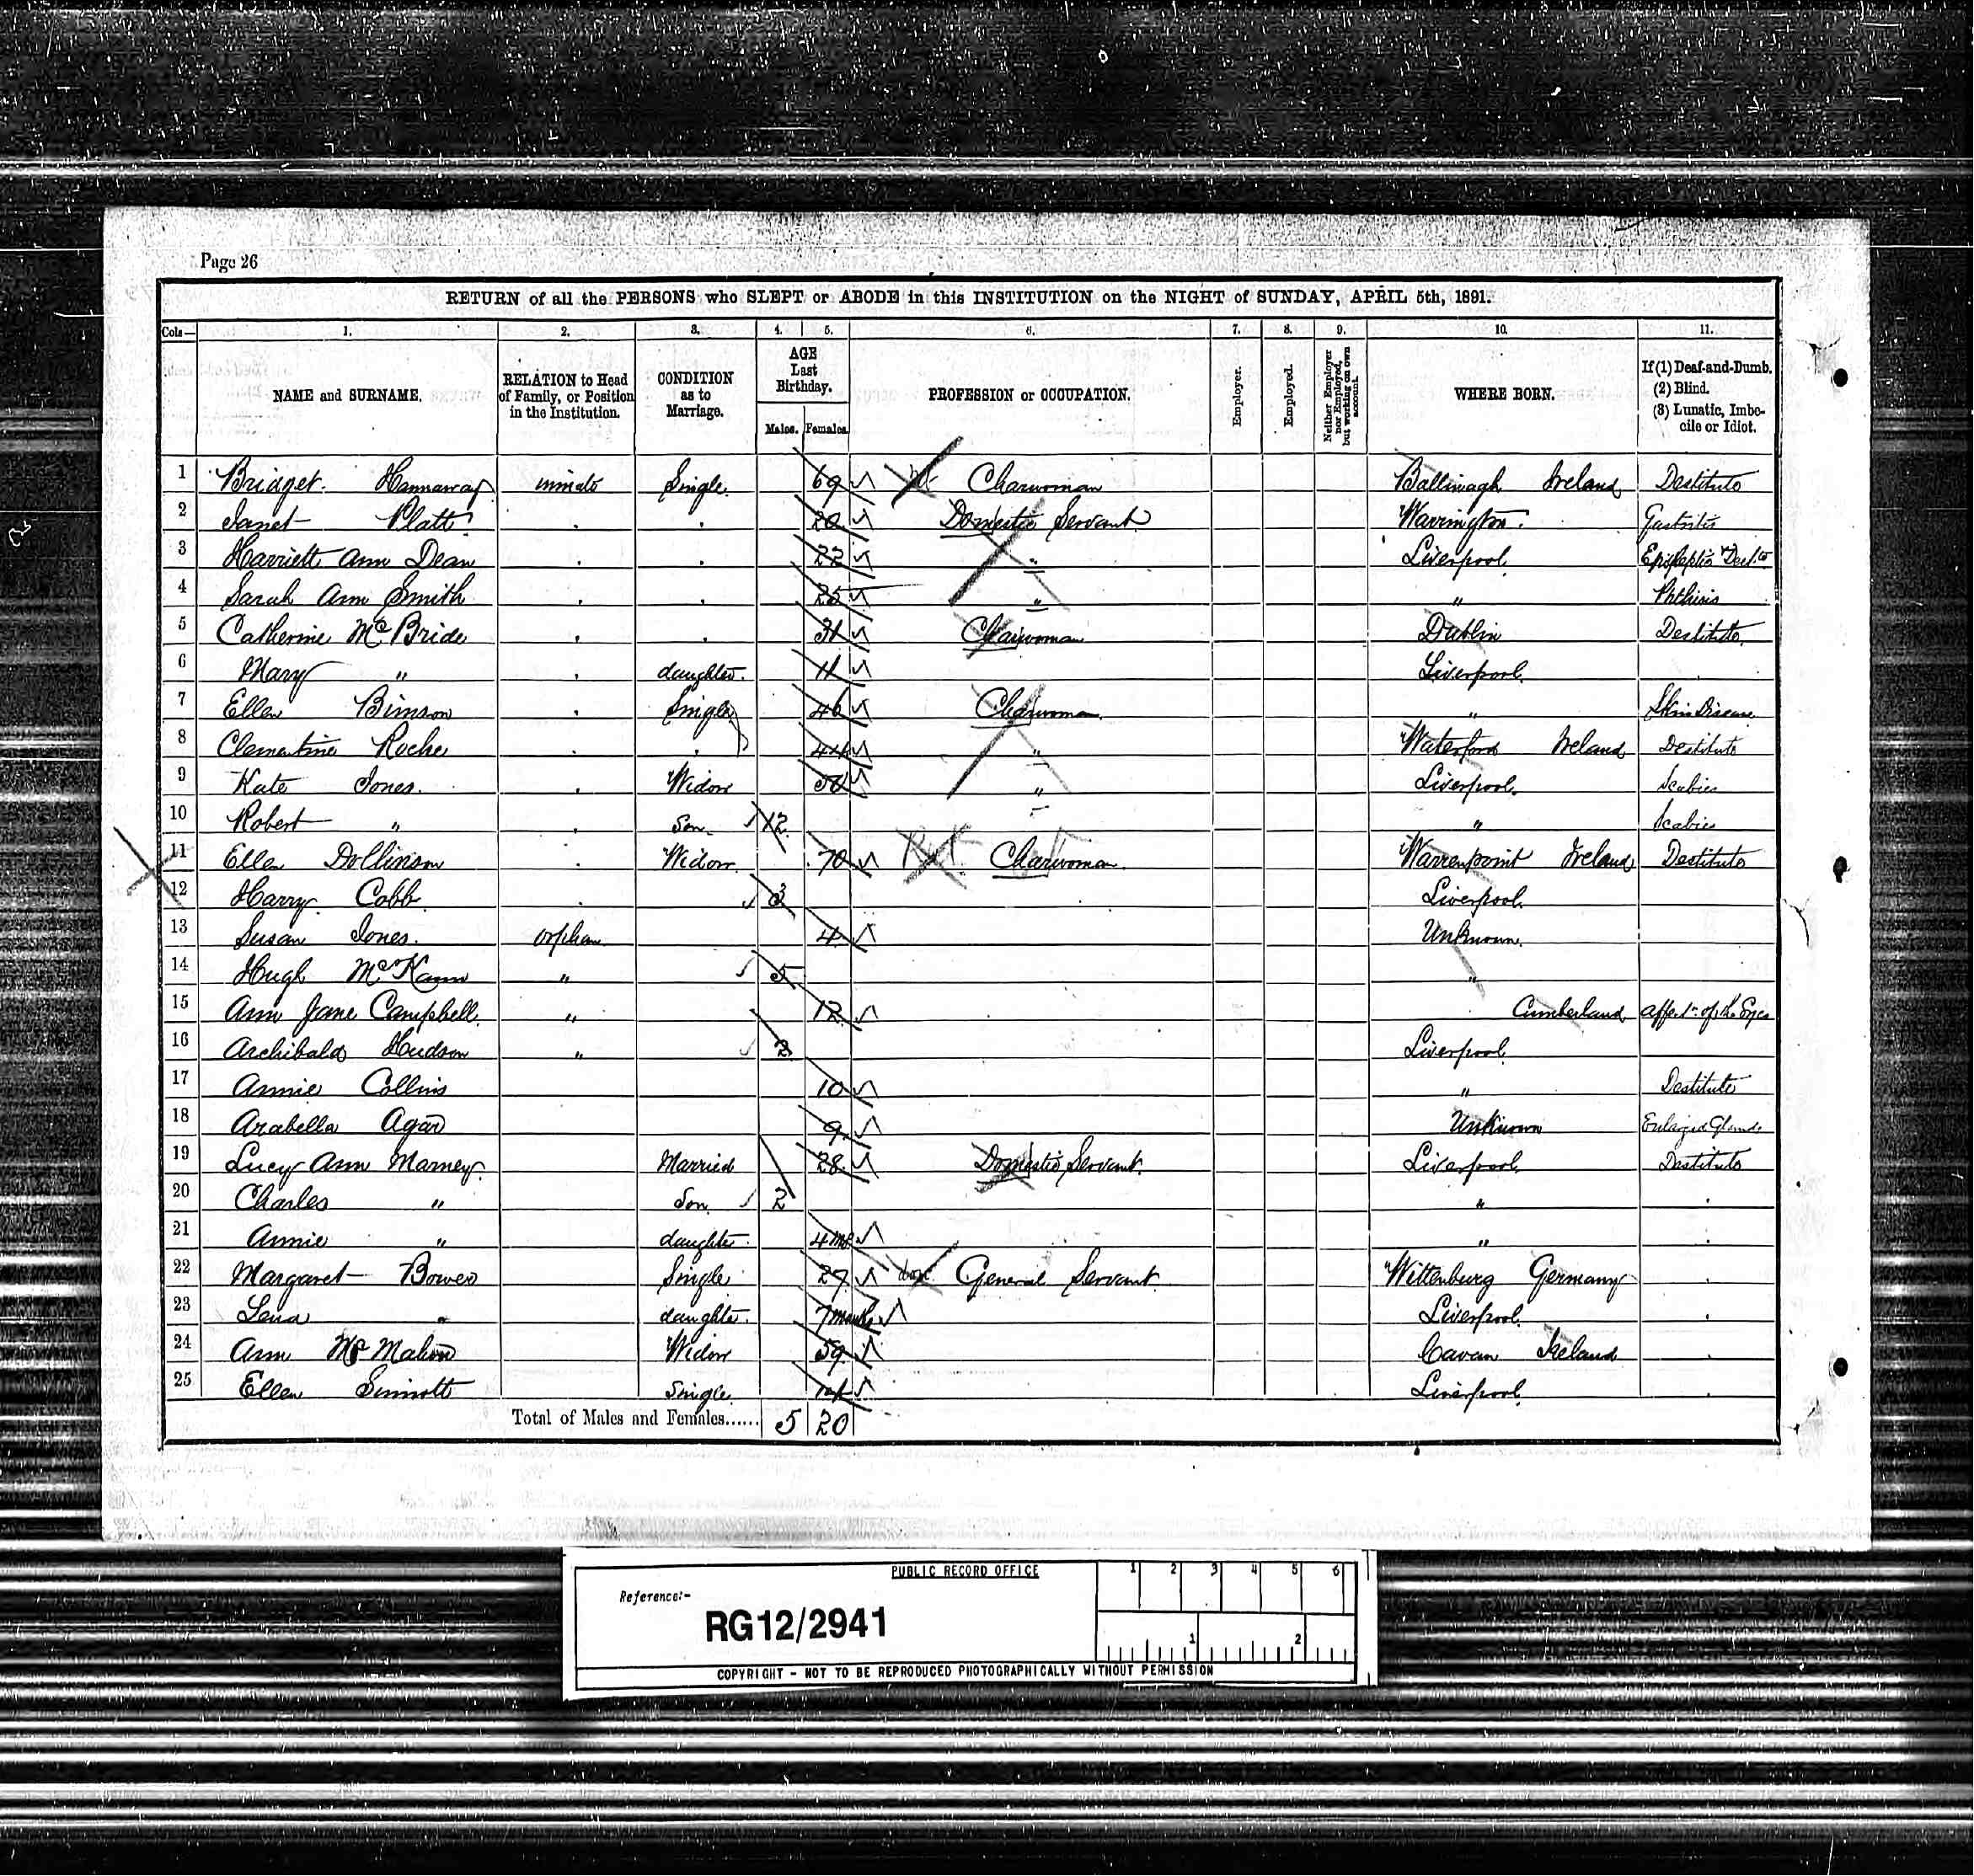 Page 26
RETURN of all the PERSONS who SLEPT or ABODE in this INSTITUTION on the NIGHT of SUNDAY, APRIL 5th, 1891.
Cols— 1. 2. 3. 4. 5. 6. 7. 8. 9. 10. 11.
NAME and SURNAME. RELATION to Head of Family, or Position in the Institution. CONDITION as to Marriage. AGE Last Birthday. Males. Females. PROFESSION or OCCUPATION. Employer. Employed. Neither Employer nor Employed, but working on own account. WHERE BORN. If (1) Deaf-and-Dumb. (2) Blind. (3) Lunatic, Imbecile or Idiot.
1 Bridget Hannaway inmate Single 69 Charwoman Ballinagh Ireland Destitute
2 Janet Platt . . 20 Domestic Servant Warrington. Gastritis
3 Harriett Ann Dean . . 22 " Liverpool Epileptic Dest.te
4 Sarah Ann Smith . . 25 " " Phthisis
5 Catherine McBride . . 31 Charwoman Dublin Destitute
6 Mary " . daughter. 11 Liverpool.
7 Ellen Bimson . Single 46 Charwoman " Skin Disease
8 Clementine Roche . . 44 " Waterford Ireland Destitute
9 Kate Jones. . Widow " Liverpool. Scabies
10 Robert " . Son 12 " Scabies
11 Ellen Dollinson . Widow 70 Charwoman. Warrenpoint Ireland Destitute
12 Harry Cobb . 3 Liverpool.
13 Susan Jones. Orphan 4 Unknown.
14 Hugh McKann " 5 "
15 Ann Jane Campbell. " 12 Cumberland affectn of the Eyes
16 Archibald Hudson " 2 Liverpool
17 Annie Collins 10 " Destitute
18 Arabella Agar 9 Unknown Enlarged Glands
19 Lucy Ann Marney Married 28 Domestic Servant. Liverpool Destitute
20 Charles " Son 2 " .
21 Annie " daughter. 4 mo " .
22 Margaret Bower Single 27 General Servant Wittenburg Germany .
23 Lena " daughter. 7 months Liverpool. .
24 Ann McMahon Widow 59 Cavan Ireland .
25 Ellen Sinnott Single. Liverpool. .
Total of Males and Females...... 5 20
PUBLIC RECORD OFFICE
1 2 3 4 5 6
Reference:-
RG12/2941
1 2
COPYRIGHT - NOT TO BE REPRODUCED PHOTOGRAPHICALLY WITHOUT PERMISSION